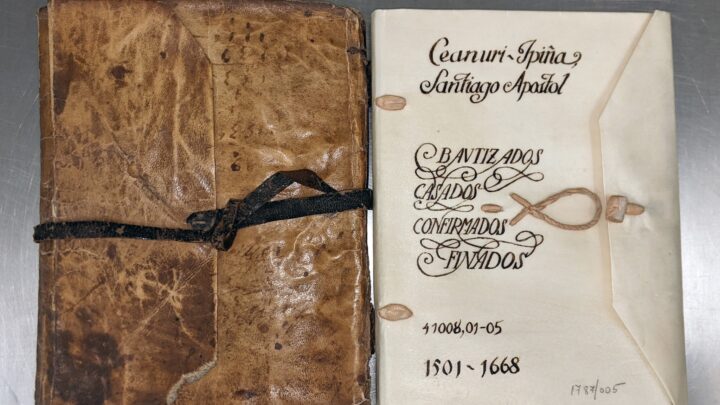 Ceanuri~Ipiña,
Santiago Apostol
BAVTIZADOS
CASADOS
CONFIRMADOS
FINADOS
41008,01-05
1501~1668
1787/005